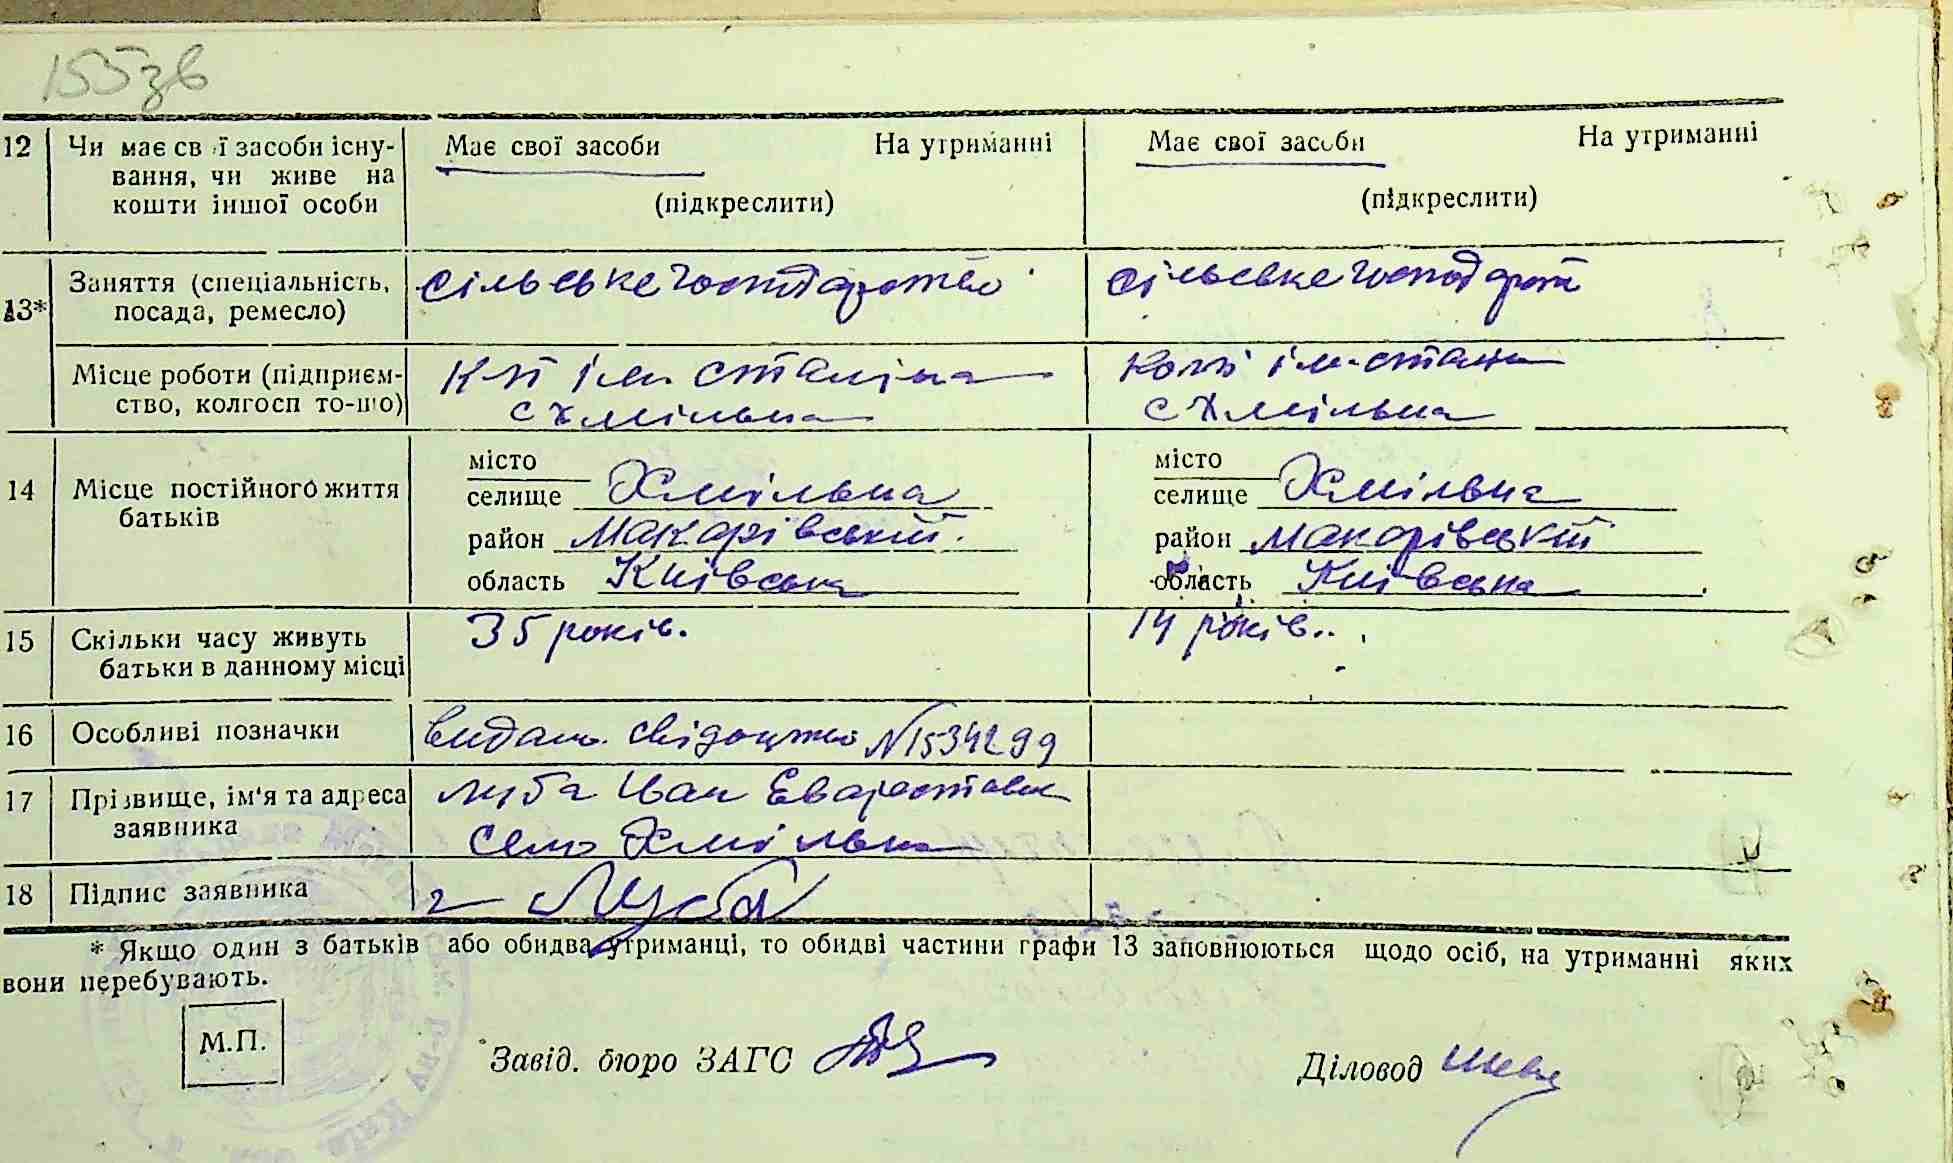 155зв
12 Чи має свої засоби існу- Має свої засоби На утриманні Має свої засоби На утриманні
вання, чи живе на
кошти іншої особи (підкреслити) (підкреслити)
13* Заняття (спеціальність, сільське господарство сільське господарст
посада, ремесло)
Місце роботи (підприєм- кгп ім сталіна ім. сталін
ство, колгосп то-що) с Хмільна с Хмільна
14 Місце постійного життя місто місто
батьків селище Хмільна селище Хмільна
район Макарівський район Макарівський
область Київська область Київська
15 Скільки часу живуть 35 років. 14 років..
батьки в данному місці
16 Особливі позначки видано свідоцтво №1534299
17 Прізвище, ім'я та адреса Луба Іван Еварестович
заявника село Хмільна
18 Підпис заявника Луба
* Якщо один з батьків або обидва утриманці, то обидві частини графи 13 заповнюються щодо осіб, на утриманні яких
вони перебувають.
М.П.
Завід. бюро ЗАГС Діловод